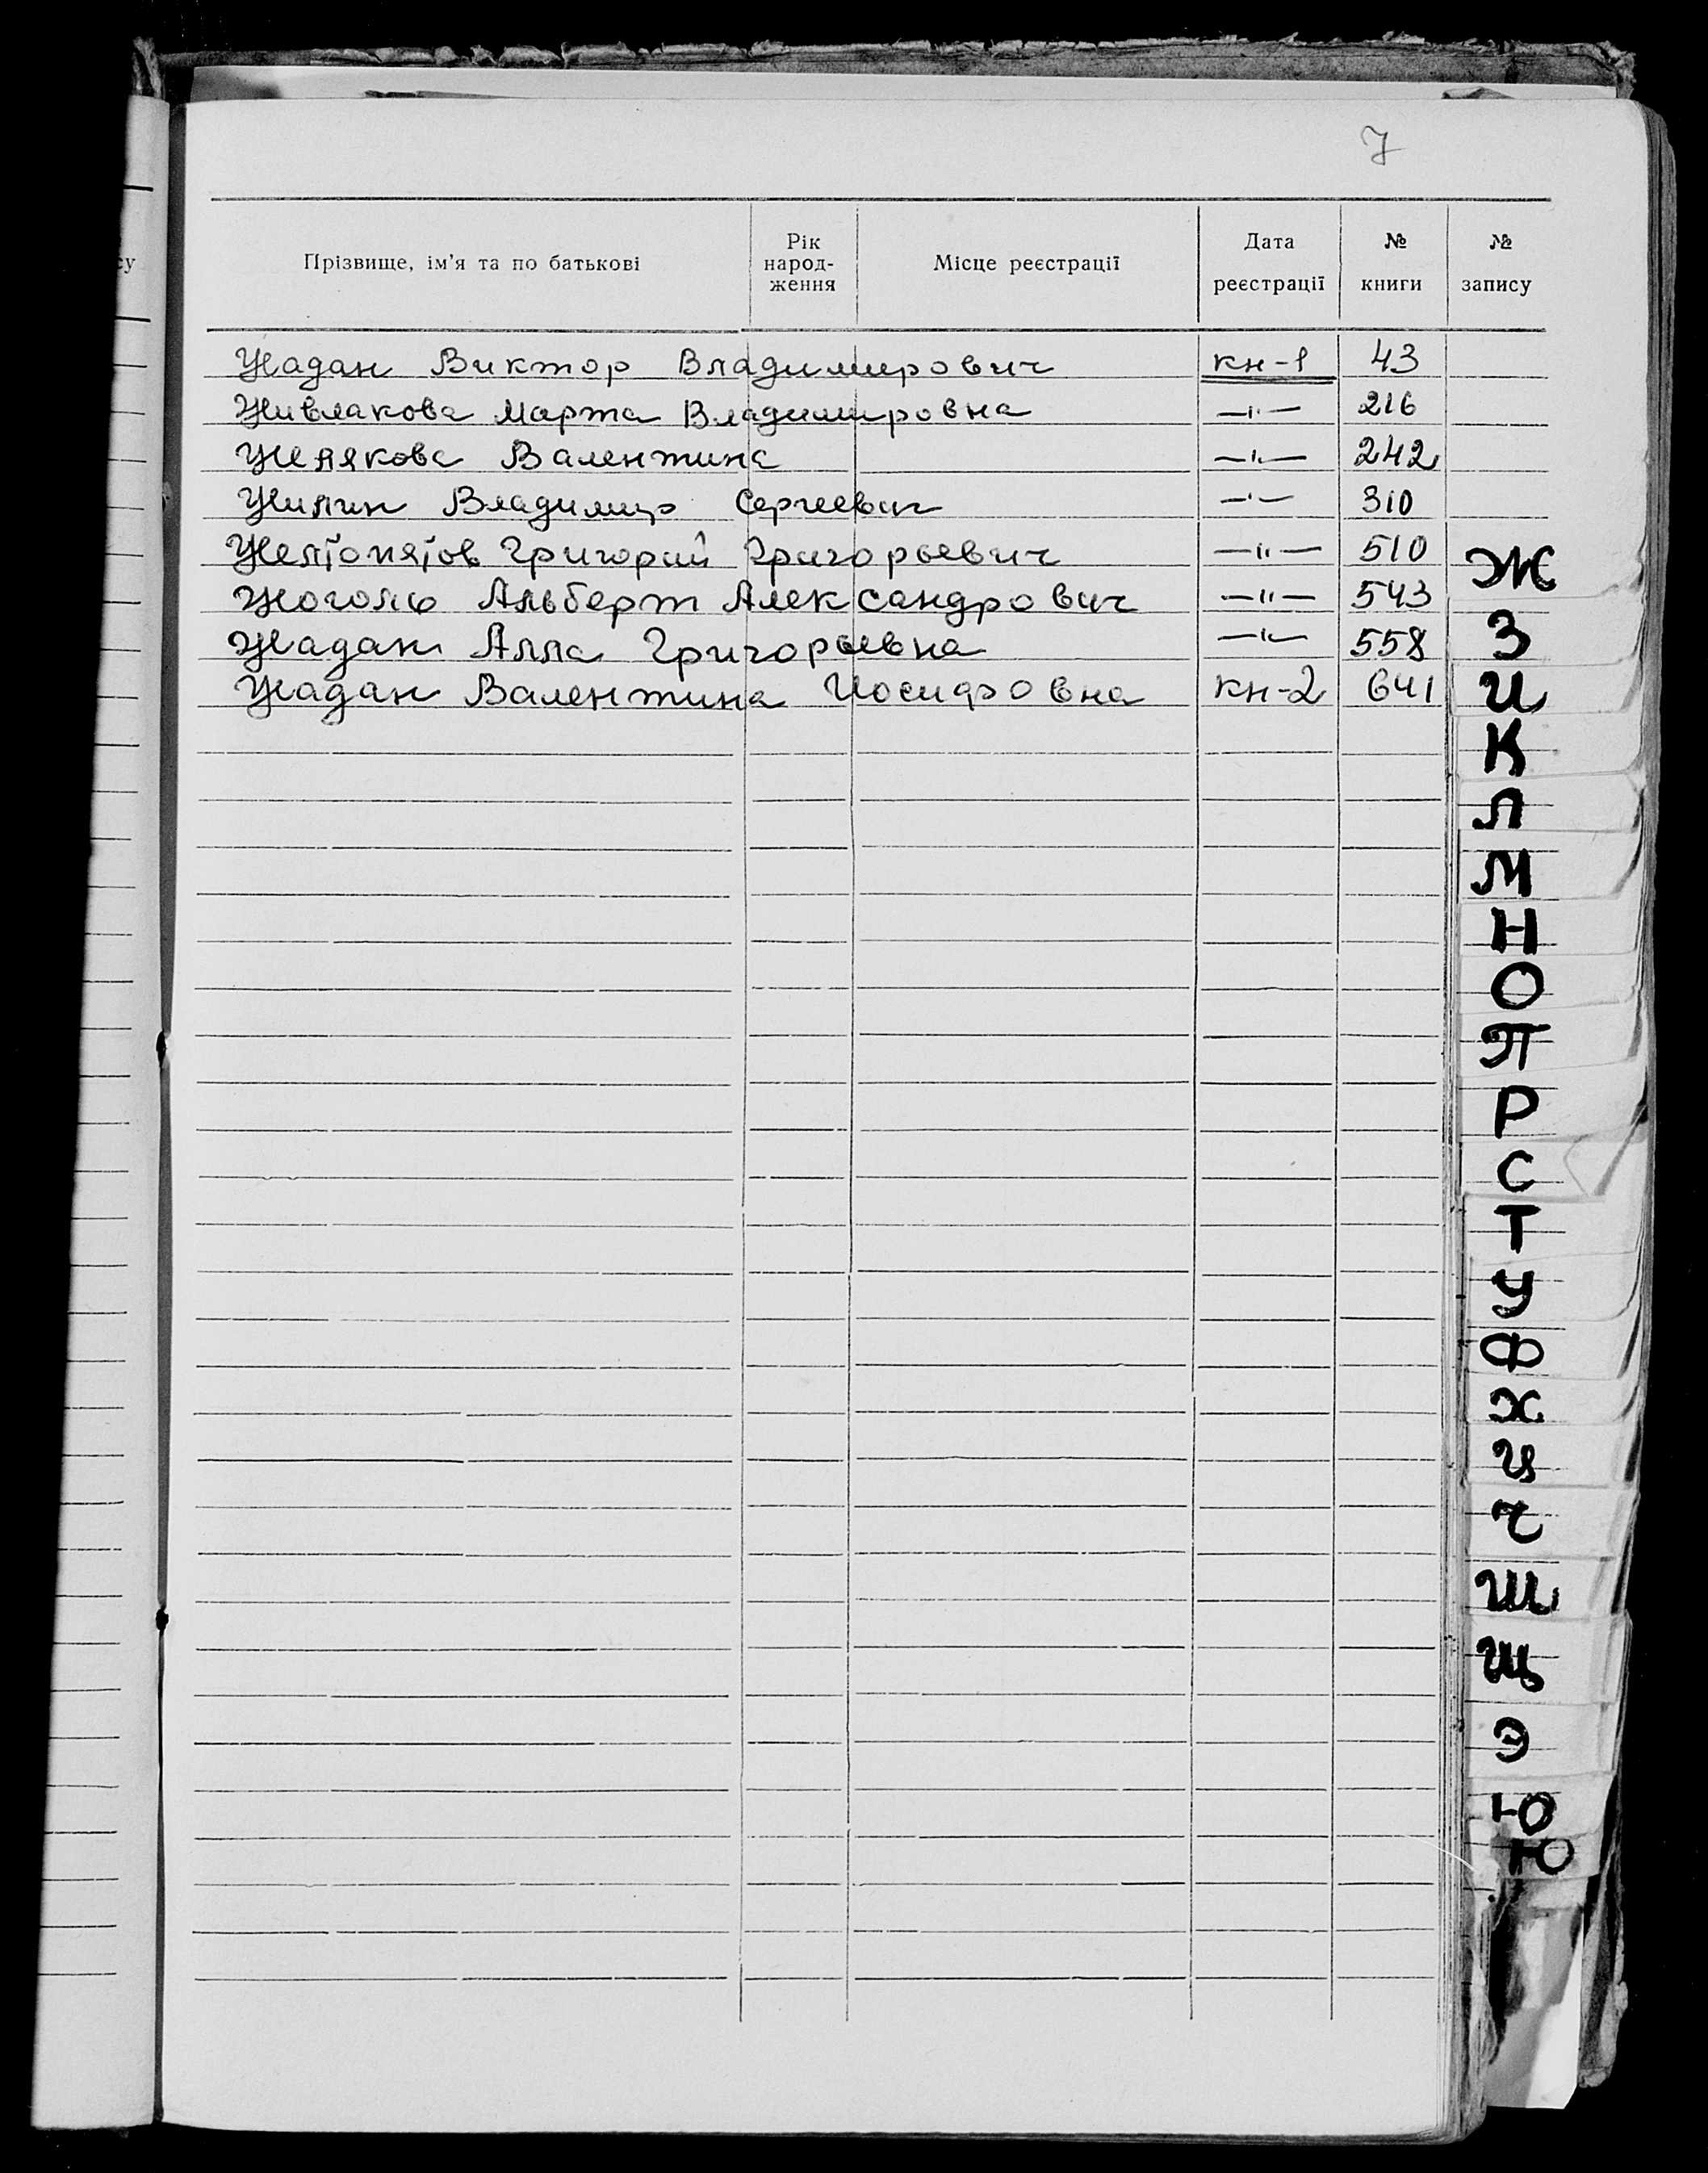 7
Прізвище, ім'я та по батькові Рік народ- ження Місце реєстрації Дата реєстрації № книги № запису
су
Жадан Виктор Владимирович кн-1 43
Живлакова Марта Владимировна —"— 216
Желякова Валентина —"— 242
Жилин Владимир Сергеевич —"— 310
Желтопятов Григорий Григорьевич —"— 510
Жоголь Альберт Александрович —"— 543
Жадан Алла Григорьевна —"— 558
Жадан Валентина Иосифовна кн-2 641
Ж
З
И
К
Л
М
Н
О
П
Р
С
Т
У
Ф
Х
Ц
Ч
Ш
Щ
Э
Ю
Ю